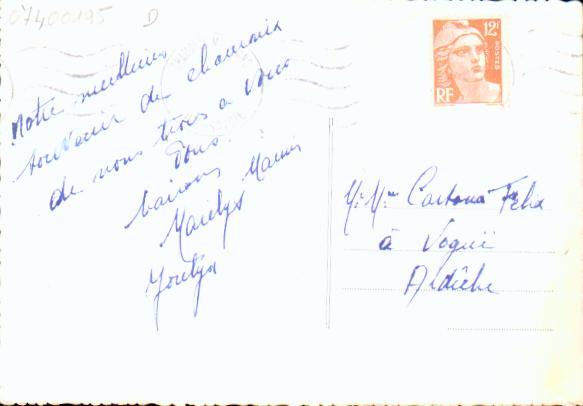 07400195 D
Notre meilleur
souvenir de chamonix
de nous trois a vous
Tous.
baisers Mamie
Maielys
Jocelyn
12F
POSTES
RF
Mr Mme Cartoux Felix
à Voguë
Ardêche